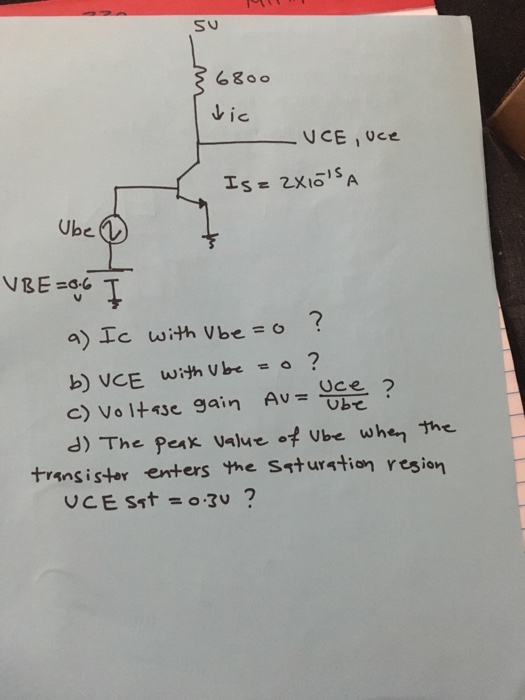 5V
6800
↓ic
VCE, Vce
IS = 2X10^-15 A
Vbe
VBE = 0.6 V
a) Ic with Vbe = 0 ?
b) VCE with Vbe = 0 ?
c) Voltage gain AV = Vce/Vbe ?
d) The peak value of Vbe when the
transistor enters the saturation region
VCE Sat = 0.3V ?